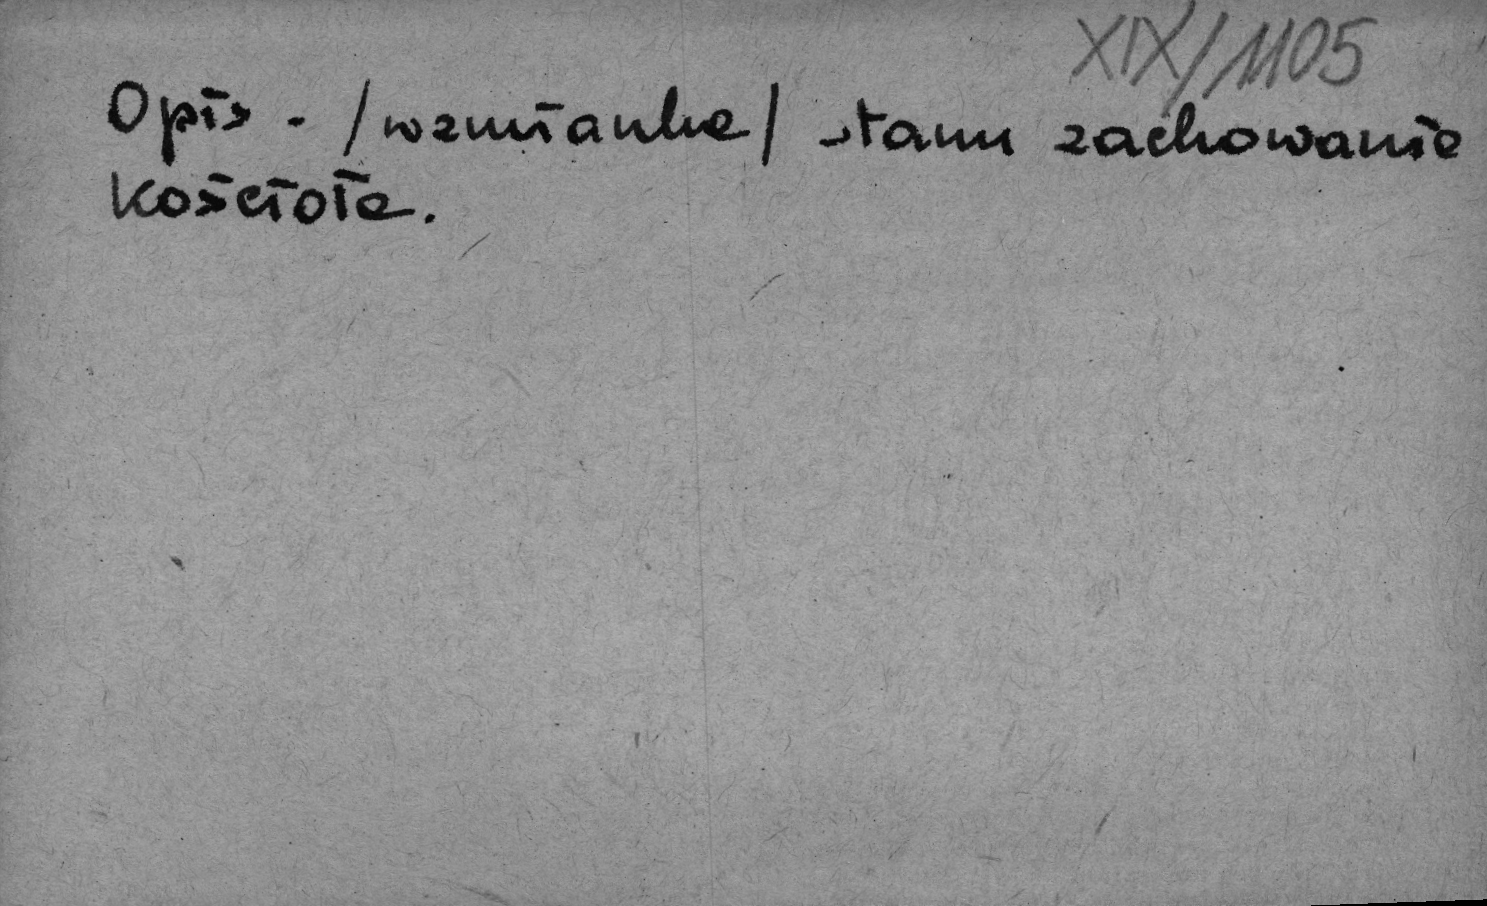 XIX/1105
Opis - /wzmianka/ stanu zachowania
kościoła.